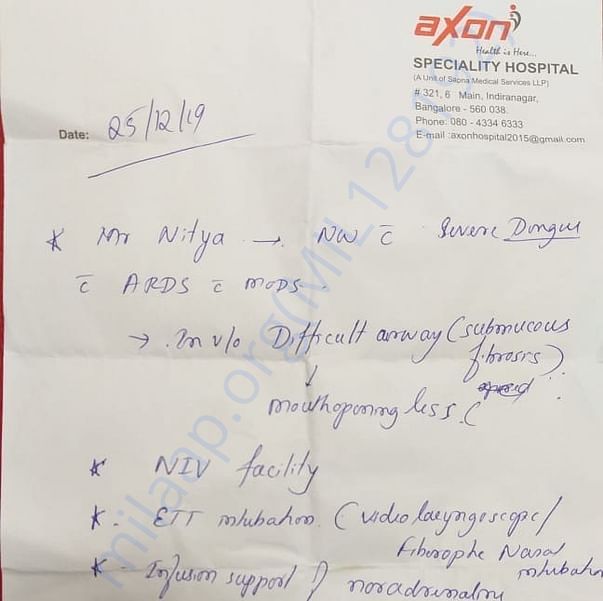 axon
Health is Here...
SPECIALITY HOSPITAL
(A Unit of Sapna Medical Services LLP)
# 321, 6 Main, Indiranagar,
Bangalore - 560 038.
Phone: 080 - 4334 6333
E-mail :axonhospital2015@gmail.com
Date: 25/12/19
* Mr Nitya → NW c̄ Severe Dengue
c̄ ARDS c̄ MODS.
→ In v/o Difficult airway (submucous
fibrosis)
↓
mouth opening less.
* NIV facility
* ETT intubation. (video laryngoscope/
Fiberoptic Nasal
intubation
* Infusion support noradrenaline
milaap.org(MIL128